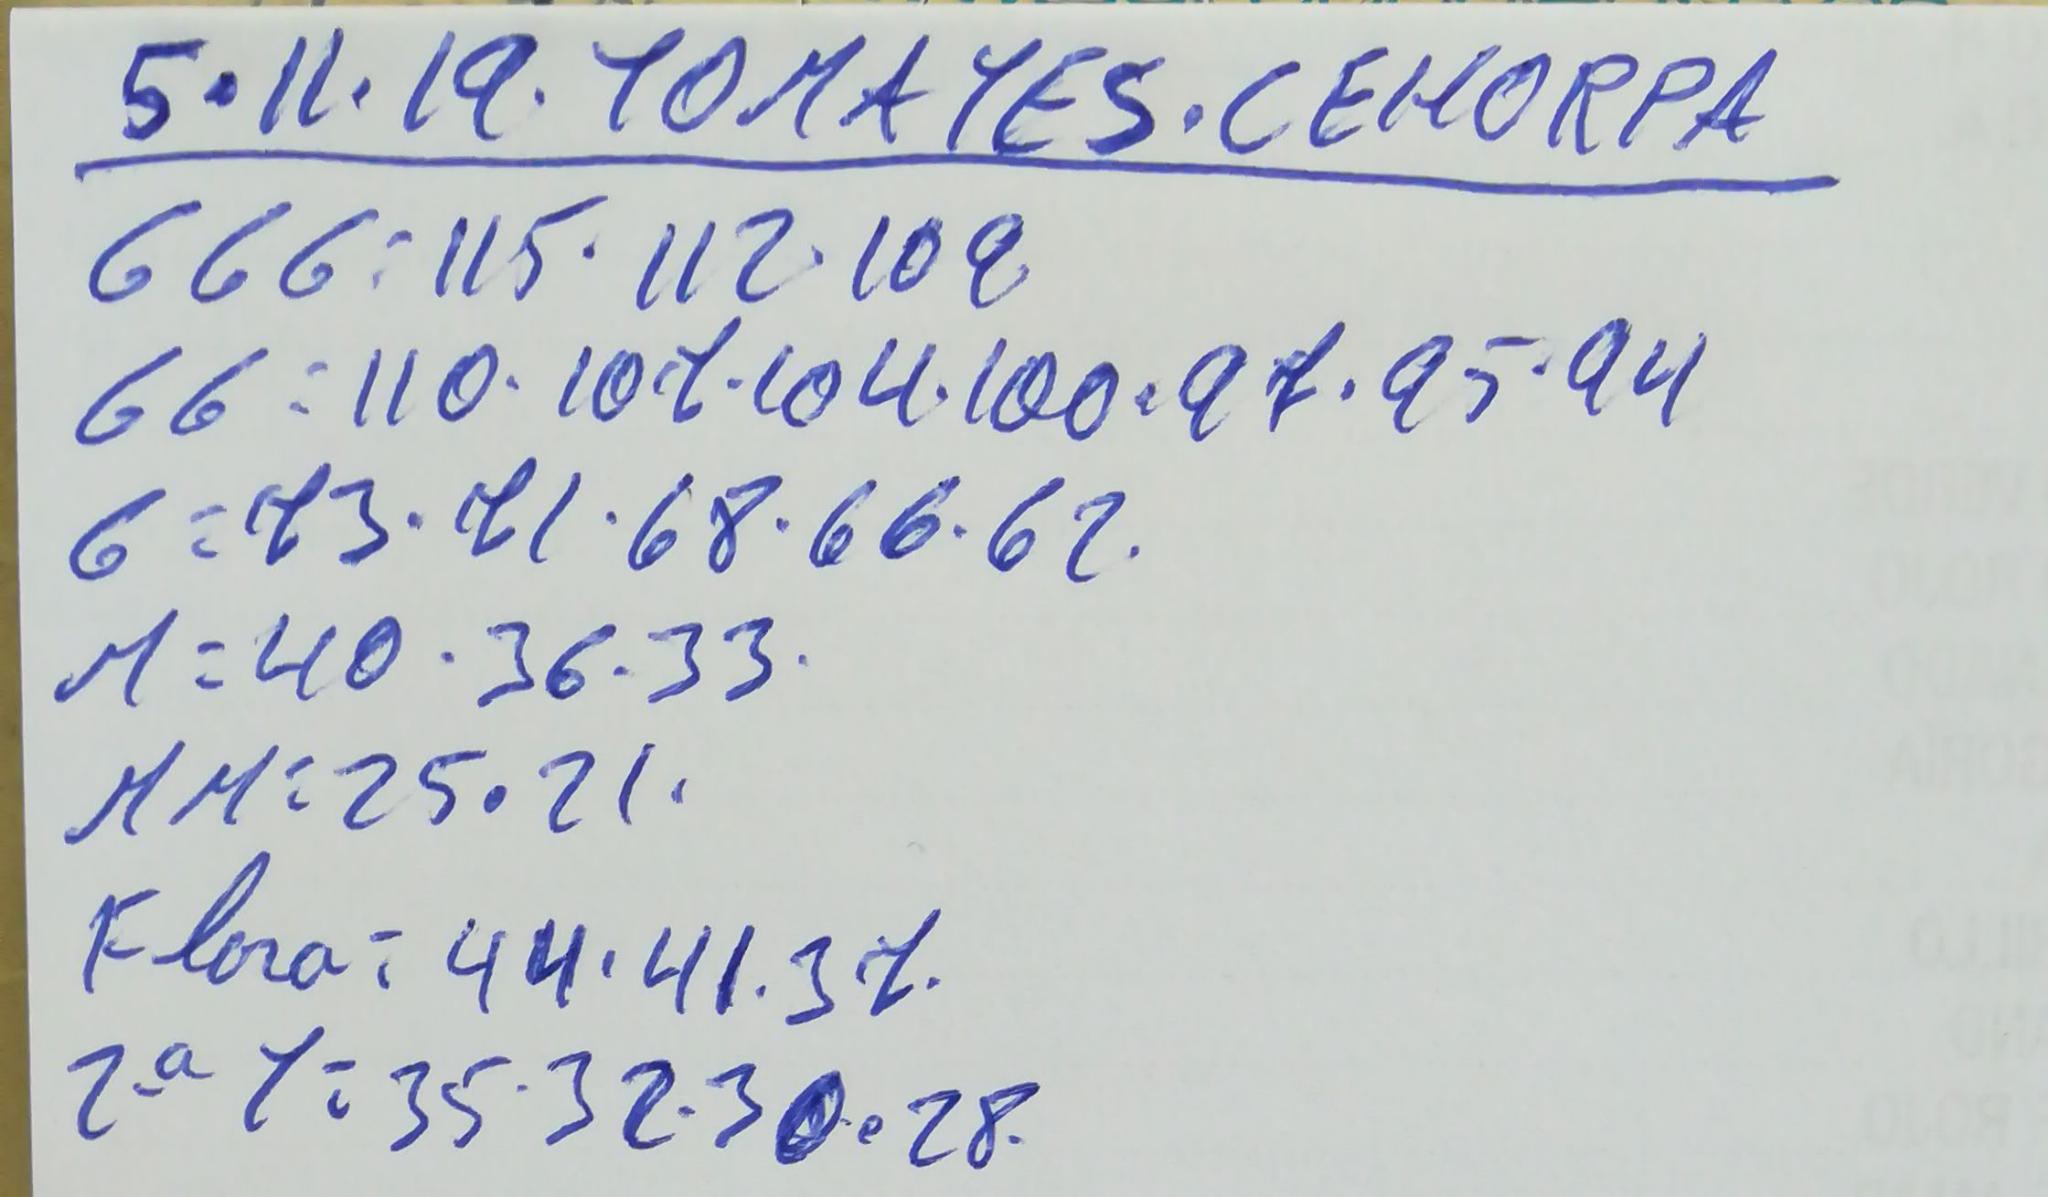 5.11.19.TOMATES.CEHORPA
GGG=115.112.109
GG=110.107.104.100.97.95.94
G=73.71.68.66.62.
M=40.36.33.
MM=25.21.
Flora=44.41.37.
2ª T=35.32.30.28.